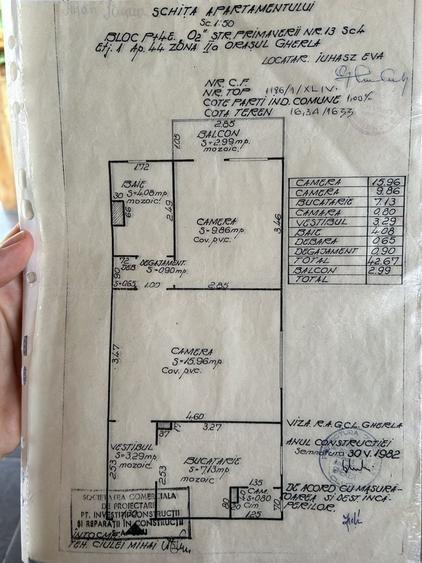 SCHIȚA APARTAMENTULUI
Sc. 1:50
BLOC P+4E. "O2" STR. PRIMAVERII NR. 13 Sc 4
Ej. 1 Ap. 44 ZONA IIa ORAȘUL GHERLA
LOCATAR. IUHASZ EVA
NR. C.F.
NR. TOP 1186/1/XLIV.
COTE PARTI IND. COMUNE 1,00%
COTA TEREN 16,34/1633
2.85
BALCON
S=2.99mp
mozaic.
1.05
1.72
BAIE
S=4.08mp
mozaic.
30
66
2.49
CAMERA
S=9.86mp.
Cov. pvc.
3.46
72
DEGAJAMENT
S=090mp
90
S=0.65
1.00
2.85
CAMERA 15.96
CAMERA 9.86
BUCATARIE 7.13
CAMARA 0.80
VESTIBUL 3.29
BAIE 4.08
DEBARA 0.65
DEGAJAMENT 0.90
TOTAL 42.67
BALCON 2.99
TOTAL
3.47
CAMERA
S=15.96mp.
Cov. pvc.
4.60
3.27
37
VESTIBUL
S=3.29mp
mozaic
2.53
2.53
BUCATARIE
S=7.13mp
mozaic
135
CAM.
S=080
Cim
80
20
1.25
VIZA. R.A.G.C.L. GHERLA
ANUL CONSTRUCTIEI
Semnatura 30 V. 1982
DE ACORD CU MASURA-
TOAREA SI DEST. INCA-
PERILOR.
SOCIETATEA COMERCIALA
DE PROIECTARE
PT. INVESTITII CONSTRUCTII
SI REPARATII IN CONSTRUCTII
INTOCMIT
TEH. CIULEI MIHAI